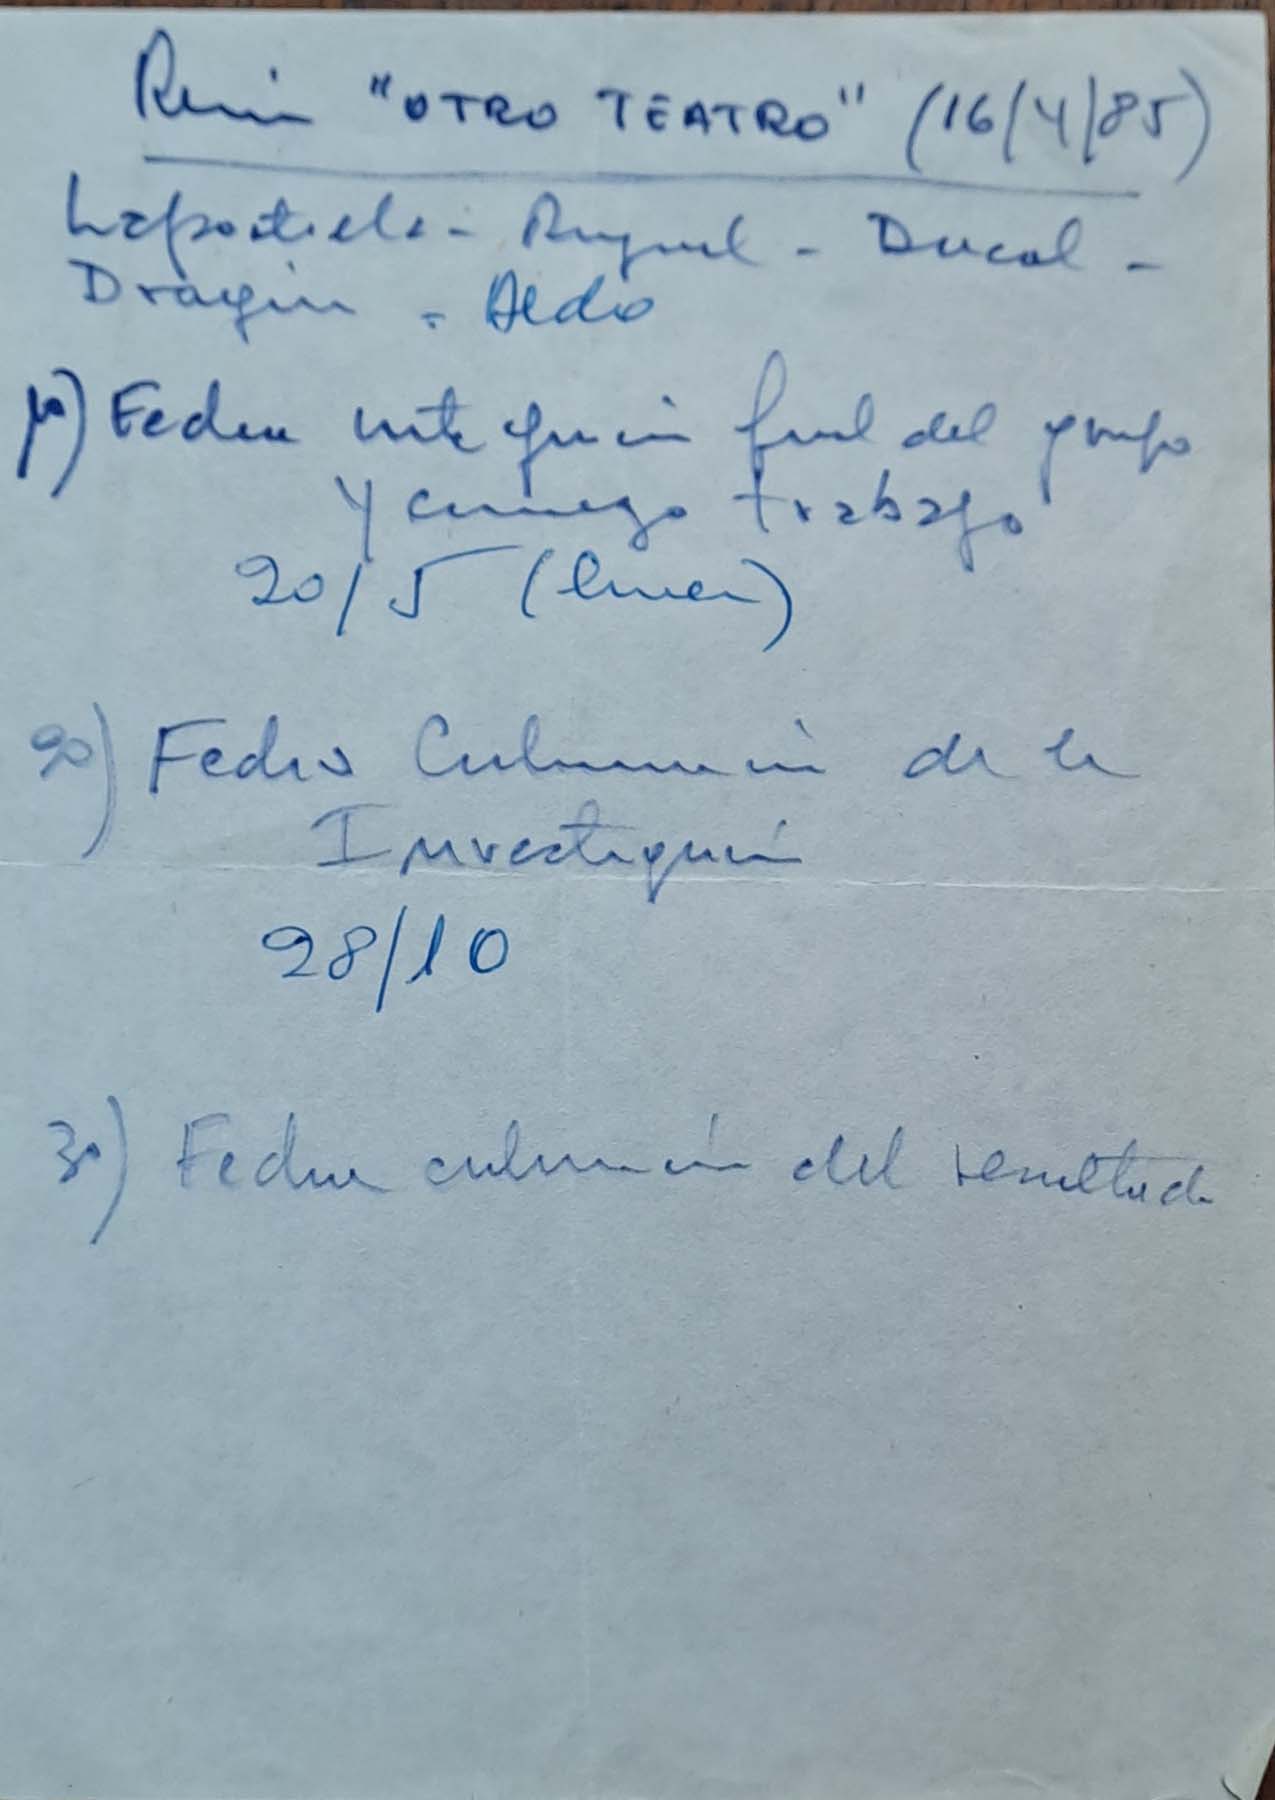 Reunión "OTRO TEATRO" (16/4/85)
Lapostiela - Raquel - Ducal -
Dragún - Aldo
1º) Fecha integración final del grupo
y comienzo trabajo
20/5 (lunes)
2º) Fecha Culminación de la
Investigación
28/10
3º) Fecha culminación del resultado